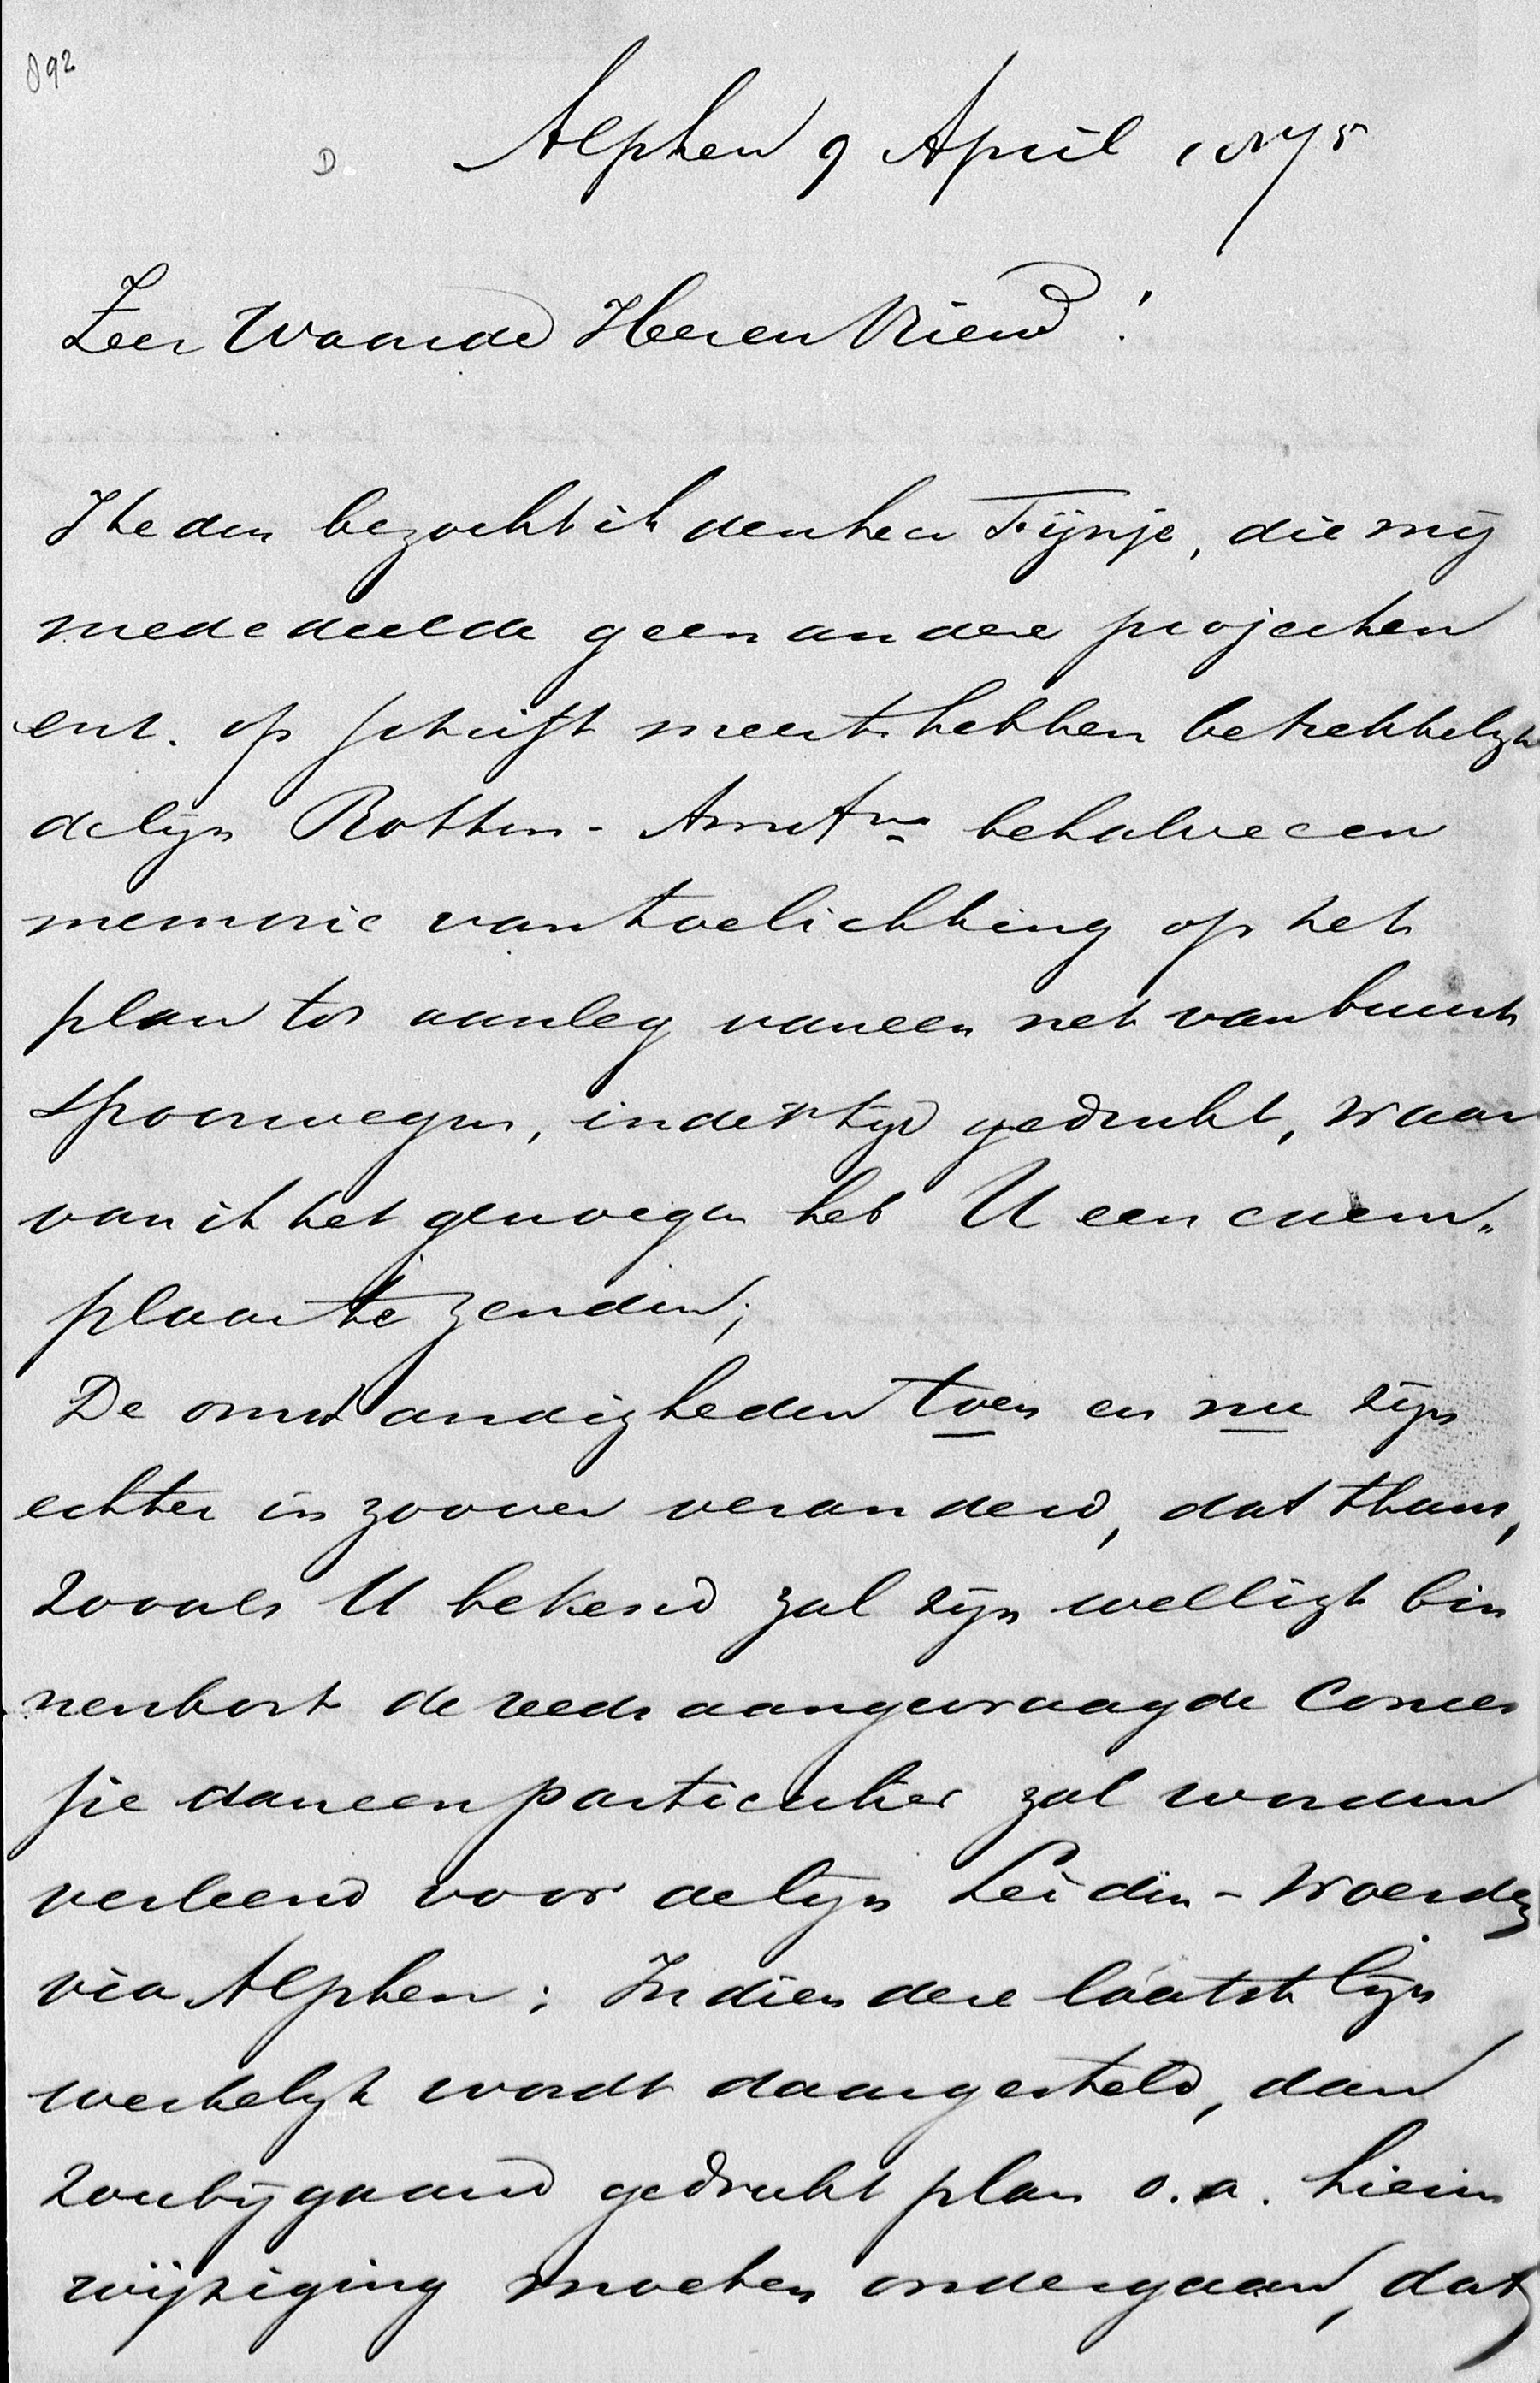 092
D
Alphen 9 April 1875
Zeer Waarde Heer en Vriend!
Heden bezocht ik den heer Fijnje, die mij
mededeelde geen andere projecten
enz. op schrift meer te hebben betrekkelijk
de lijn Rottm - Amstm behalve een
memorie van toelichting op het
plan tot aanleg van een net van buurt
spoorwegen, indertijd gedrukt, waar
van ik het genoegen heb U een exem„
plaar te zenden;
De omstandigheden toen en nu zijn
echter in zoover veranderd, dat thans,
zooals U bekend zal zijn welligt bin
nenkort de reeds aangevraagde Conces
sie door een particulier zal worden
verleend voor de lijn Leiden - Woerden
via Alphen; Indien deze laatste lijn
werkelijk wordt daargesteld, dan
zou bijgaand gedrukt plan o.a. hierin
wijziging moeten ondergaan, dat